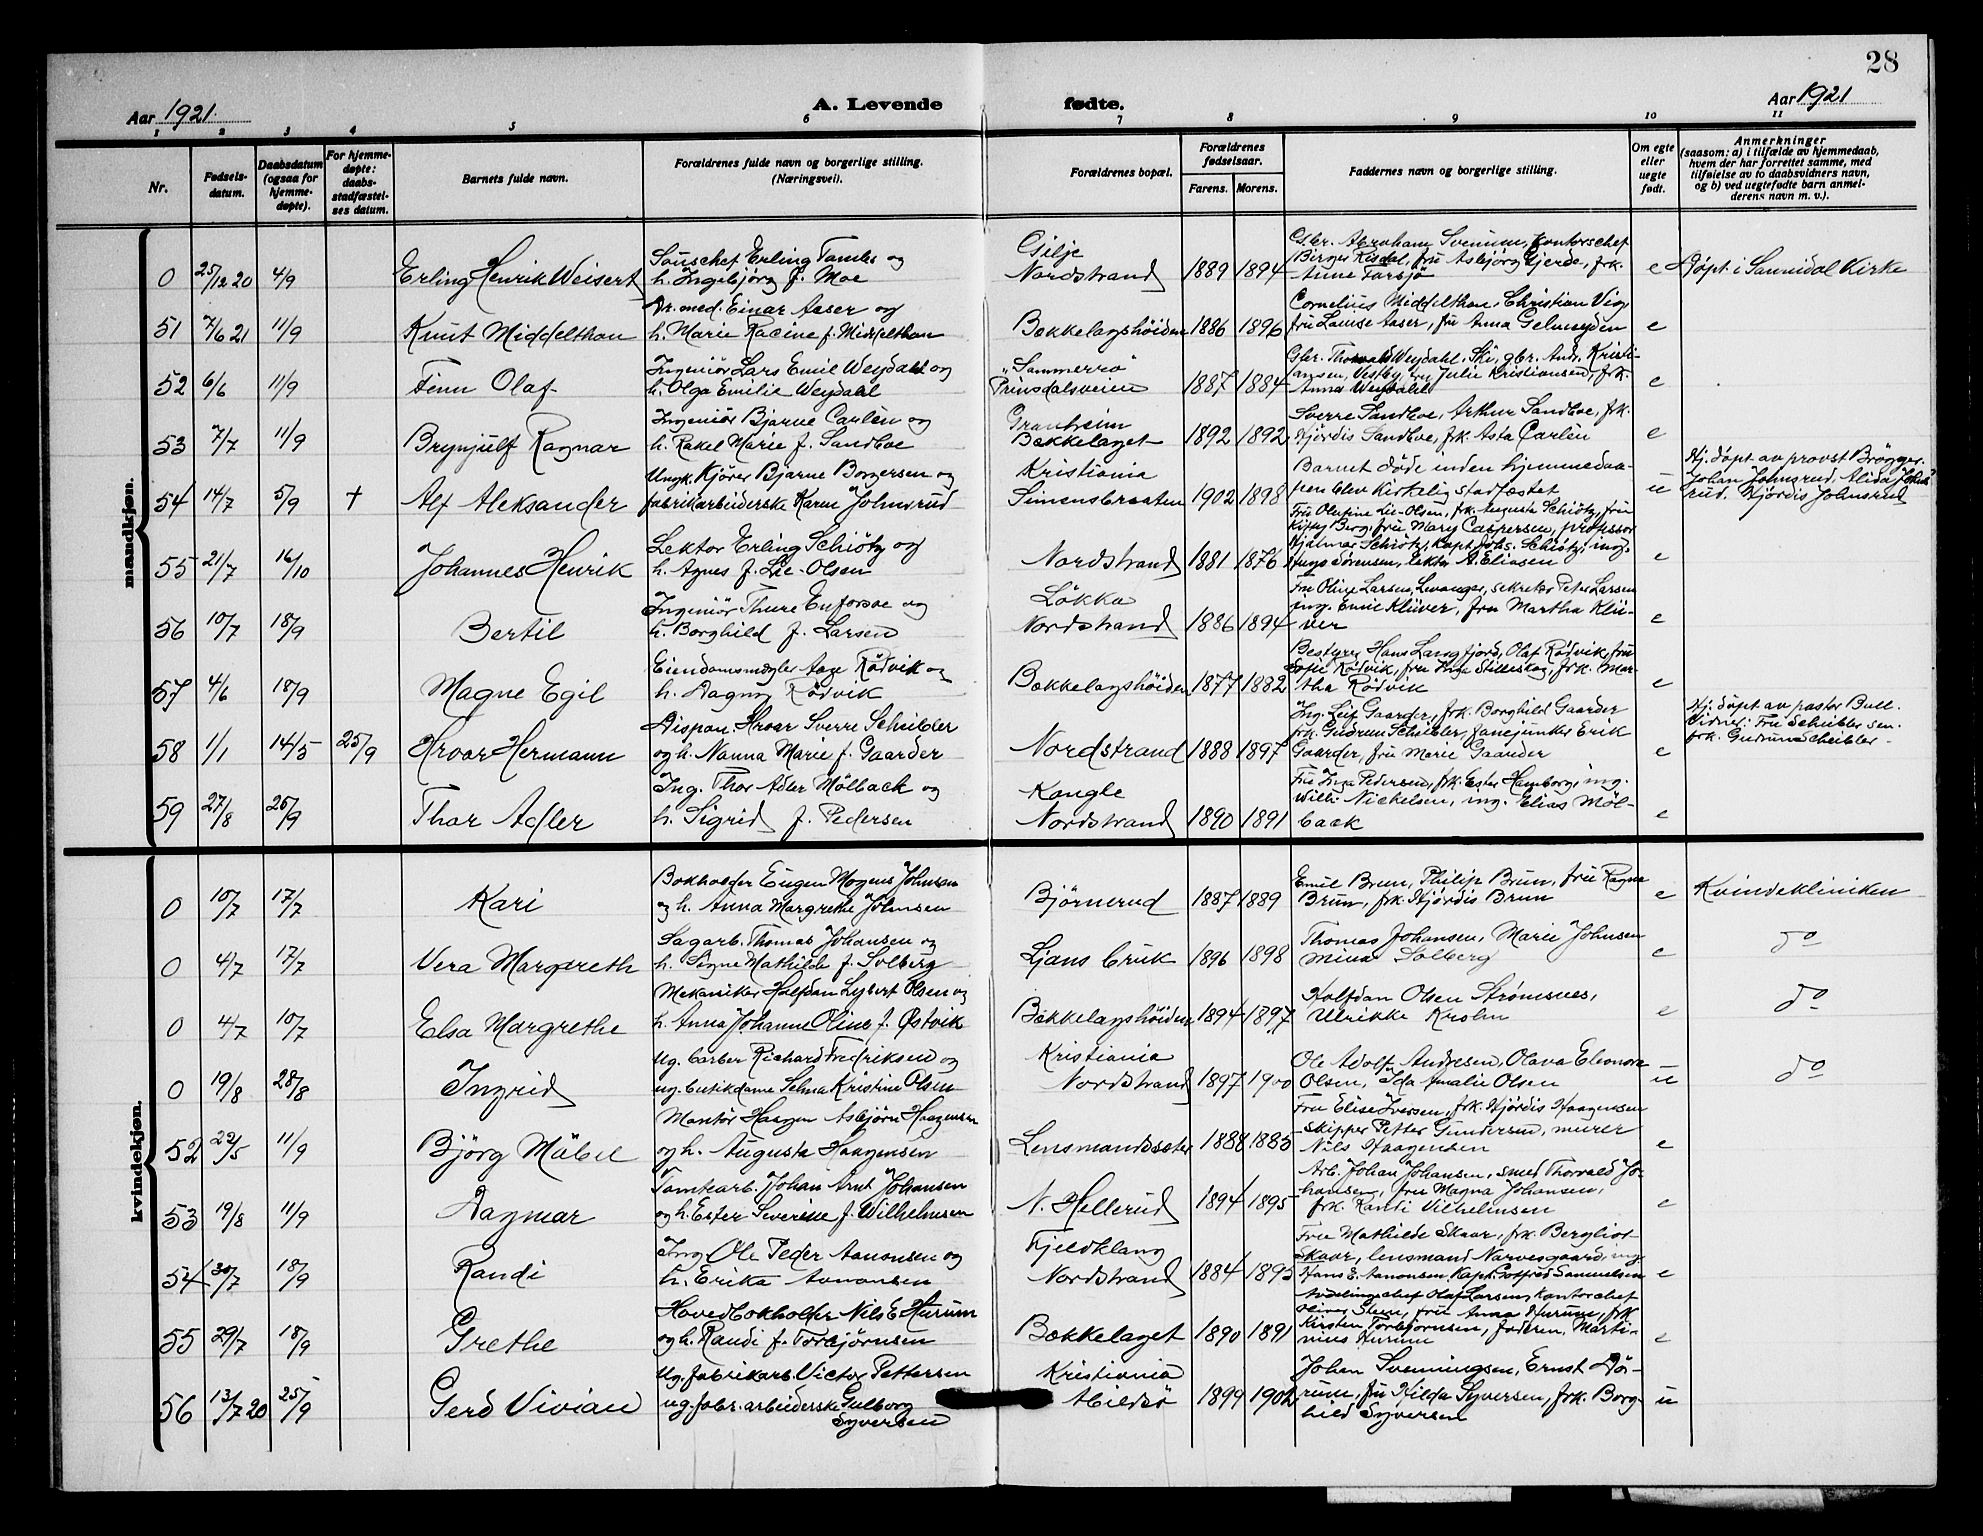 28
Aar 1921.
A. Levende
fødte.
Aar 1921
1 2 3 4 5 6 7 8 9 10 11
Nr.
Fødsels-
datum.
Daabsdatum
(ogsaa for
hjemme-
døpte).
For hjemme-
døpte:
daabs-
stadfæstel-
ses datum.
Barnets fulde navn.
Forældrenes fulde navn og borgerlige stilling.
(Næringsvei).
Forældrenes bopæl.
Forældrenes
fødselsaar.
Farens. Morens.
Faddernes navn og borgerlige stilling.
Om egte
eller
uegte
født.
Anmerkninger
(saasom: a) i tilfælde av hjemmedaab,
hvem der har forrettet samme, med
tilføielse av to daabsvidners navn,
og b) ved uegtefødte barn anmel-
derens navn m. v.).
mandkjøn.
0 25/12 20 4/9 Erling Henrik Weisert
Erling Tambs og
h. Ingebjörg f. Moe
Gilje
Nordstrand 1889 1894
Gbr. Abraham Svenum, kontorschef
Birger Risdal, fru Asbjörg Gjerde, frk.
Anne Farsjö
e Døpt i Sannidal Kirke
51 7/6 21 11/9 Knut Middelthon
Dr. med. Einar Aaser og
h. Marie Racine f. Middelthon
Bækkelagshöiden 1886 1896
Cornelius Middelthon, Christian Vig,
fru Louise Aaser, fru Anna Gelmuyden
e
52 6/6 11/9 Finn Olaf
Ingeniör Lars Emil Weydahl og
h. Olga Emilie Weydahl
"Sommerro
Prinsdalsveien 1887 1884
Gbr. Thorvald Weydahl, Ski, gbr. Andr. Kristi-
ansen, Vestby, fru Julie Kristiansen, frk.
Anna Weydahl
e
53 7/7 11/9 Brynjulf Ragnar
Ingeniör Bjarne Carlèn og
h. Rakel Marie f. Sandboe
Granheim
Bækkelaget 1892 1892
Sverre Sandboe, Arthur Sandboe, frk.
Hjördis Sandboe, frk. Asta Carlèn
e
54 14/7 5/9 † Alf Aleksander
Ungk. Kjörer Bjarne Borgersen og
fabrikarbeiderske Karen Johnsrud
Kristiania
Simensbraaten 1902 1898
Barnet döde inden hjemmedaa-
pen blev kirkelig stadfæstet
u
Hj. döpt av provst Brögger.
Johan Johnsrud, Alida Johns-
rud, Hjördis Johnsrud
55 21/7 16/10 Johannes Henrik
Lektor Erling Schiötz og
h. Agnes f. Lie-Olsen
Nordstrand 1881 1876
Fru Olufine Lie-Olsen, frk. Augusta Schiötz, fru
Kitty Berg, fru Mary Caspersen, professor
Hjalmar Schiötz, Kapt. Johs. Schiötz, ing.
Sörensen, lektor A. Eliasen
e
56 10/7 18/9 Bertil
Ingeniör Thure Enforsse og
h. Borghild f. Larsen
Lökka
Nordstrand 1886 1894
Fru Oline Larsen, Levanger, sekretær Peter Larsen
ing. Emil Klüver, fru Martha Klü-
ver
e
57 4/6 18/9 Magne Egil
Eiendomsmægler Aage Rödvik og
h. Dagny Rödvik
Bækkelagshöiden 1877 1882
Bestyrer Hans Langfjord, Olaf Rödvik, fru
Sofie Rödvik, fru Inga Stilleskog, frk. Mar-
tha Rödvik
e
58 1/1 14/5 25/9 Hroar Hermann
Dispon. Hroar Sverre Scheibler
og h. Nanna Marie f. Gaarder
Nordstrand 1888 1897
Ing. Leif Gaarder, frk. Borghild Gaarder
frk. Gudrun Scheibler, fanejunker Erik
Gaarder, fru Marie Gaarder
e
Hj. döpt av pastor Bull.
Vidner: Fru Scheibler sen.
frk. Gudrun Scheibler.
59 27/8 25/9 Thor Adler
Ing. Thor Adler Mölback og
h. Sigrid f. Pedersen
Kongle
Nordstrand 1890 1891
Fru Inga Pedersen, frk. Ester Hamborg, ing.
Wilh. Nickelsen, ing. Elias Möl-
back
e
kvindekjøn.
0 10/7 17/7 Kari
Bokholder Eugen Mogens Johnsen
og h. Anna Margrethe Johnsen
Björnerud 1887 1889
Emil Brun, Philip Brun, fru Ragna
Brun, frk. Hjördis Brun
e Kvindekliniken
0 4/7 17/7 Vera Margareth
Sagarb. Thomas Johansen og
h. Signe Mathilde f. Solberg
Ljans bruk 1896 1898
Thomas Johansen, Marie Johnsen
Mina Solberg
e do
0 4/7 10/7 Elsa Margrethe
Mekaniker Halfdan Lybert Olsen og
h. Anna Johanne Oline f. Østvik
Bækkelagshöiden 1894 1897
Halfdan Olsen Strømsnes,
Ulrikke Krohn
e do
0 19/8 28/8 Ingrid
Ug. barber Richard Fredriksen og
ug. butikdame Selma Kristine Olsen
Kristiania
Nordstrand 1897 1900
Ole Adolf Andresen, Olava Eleonora
Olsen, Ida Amalie Olsen
u do
52 22/5 11/9 Björg Mäbel
Montör Haagen Asbjörn Haagensen
og h. Augusta Haagensen
Lensmandssæter 1888 1885
Fru Elise Iversen, frk. Hjördis Haagensen
skipper Petter Gundersen, murer
Nils Haagensen
e
53 19/8 11/9 Dagmar
Tomtearb. Johan Arnt Johansen
og h. Ester Severine f. Wilhelmsen
N. Hellerud 1894 1895
Arb. Johan Johansen, smed Thorvald Jo-
hansen, fru Magna Johansen,
frk. Randi Vilhelmsen
e
54 30/7 18/9 Randi
Ing. Ole Peder Aanonsen og
h. Erika Aanonsen
Fjeldklang
Nordstrand 1884 1895
Fru Mathilde Skaar, frk. Bergliot
Skaar, lensmand Narvesgaard, ing.
Hans E. Aanonsen, Kapt. Gotfred Samuelsen
e
55 29/7 18/9 Grethe
Hovedbokholder Nils E Hurum
og h. Randi f. Torbjörnsen
Bækkelaget 1890 1891
Avdelingschef Olaf Larsen, Kontorchef
Oliver Steen, fru Anna Hurum, frk.
Kirsten Torbjörnsen, faderen, Marti-
nius Hurum
e
56 13/7 20 25/9 Gerd Vivian
Ug. fabrikarb. Victor Pettersen
ug. fabr. arbeiderske Gulborg
Syversen
Kristiania
Abildsö 1899 1902
Johan Svenningsen, Ernst Dör-
rum, fru Hilda Syversen, frk. Borg-
hild Syversen
u